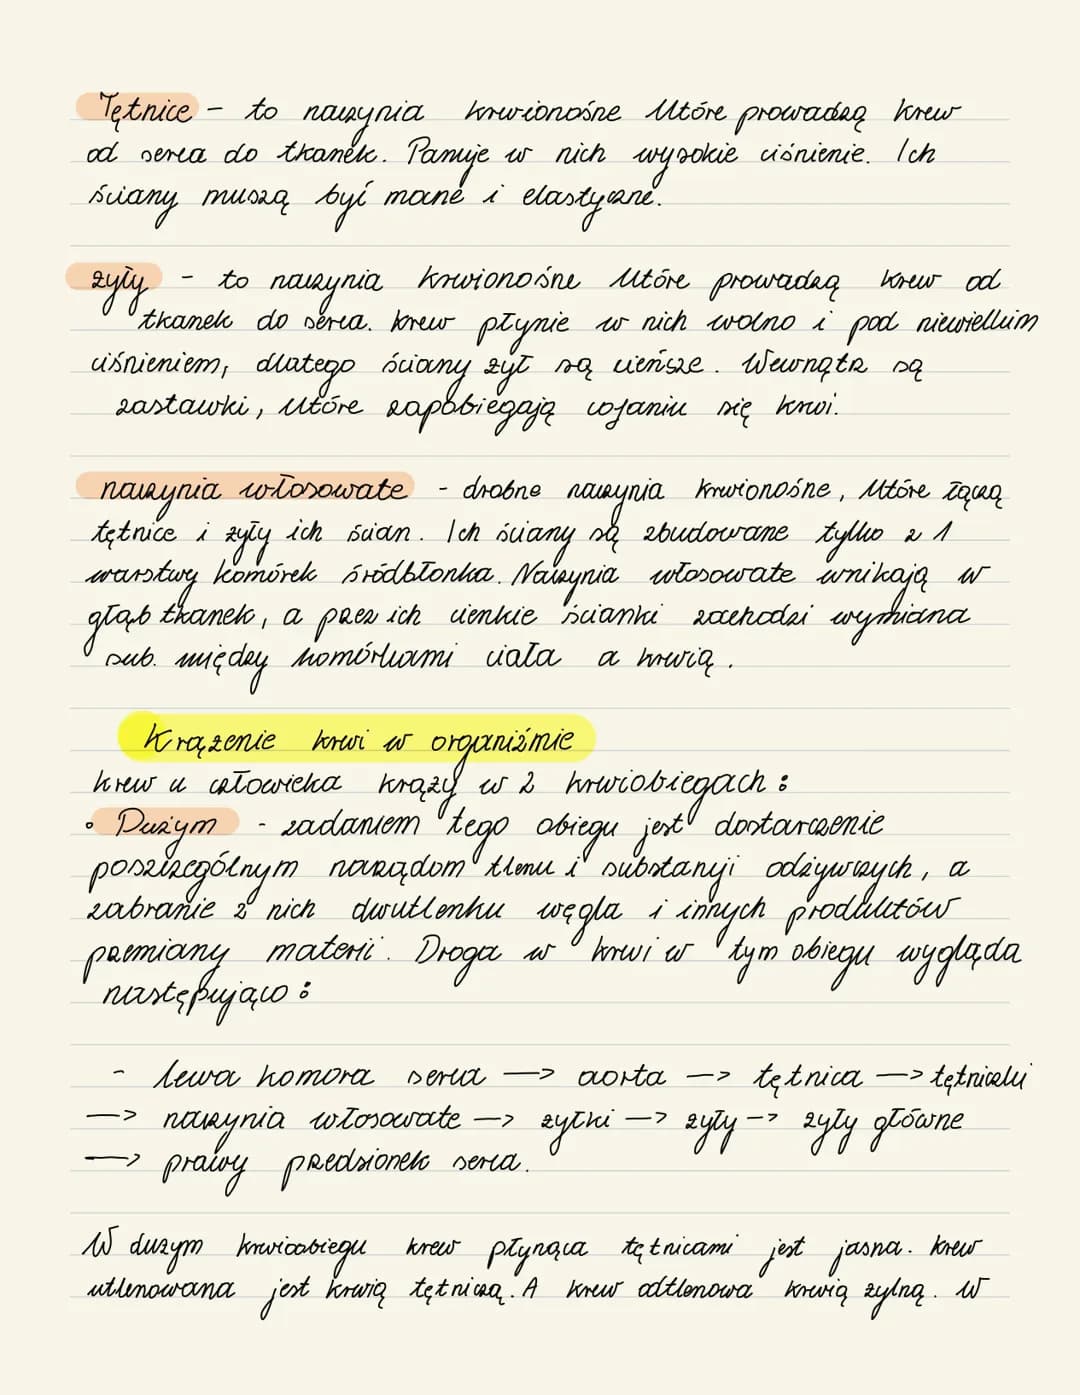 Tętnice - to naczynia krwionośne które prowadzą krew
od serca do tkanek. Panuje w nich wysokie ciśnienie. Ich
ściany muszą być mocne i elastyczne.
żyły - to naczynia krwionośne które prowadzą krew od
tkanek do serca. krew płynie w nich wolno i pod niewielkim
ciśnieniem, dlatego ściany żył są cieńsze. Wewnątrz są
zastawki, które zapobiegają cofaniu się krwi.
naczynia włosowate - drobne naczynia krwionośne, które łączą
tętnice i żyły ich ścian. Ich ściany są zbudowane tylko z 1
warstwy komórek śródbłonka. Naczynia włosowate wnikają w
głąb tkanek, a przez ich cienkie ścianki zachodzi wymiana
sub. między komórkami ciała a krwią.
Krążenie krwi w organiźmie
krew u człowieka krąży w 2 krwiobiegach:
• Dużym - zadaniem tego obiegu jest dostarczenie
poszczególnym narządom tlenu i substancji odżywczych, a
zabranie z nich dwutlenku węgla i innych produktów
przemiany materii. Droga w krwi w tym obiegu wygląda
następująco:
- lewa komora serca —> aorta —> tętnica —> tętniczki
—> naczynia włosowate —> żyłki —> żyły —> żyły główne
—> prawy przedsionek serca.
W dużym krwioobiegu krew płynąca tętnicami jest jasna. krew
utlenowana jest krwią tętniczą. A krew odtlenowa krwią żylną. W